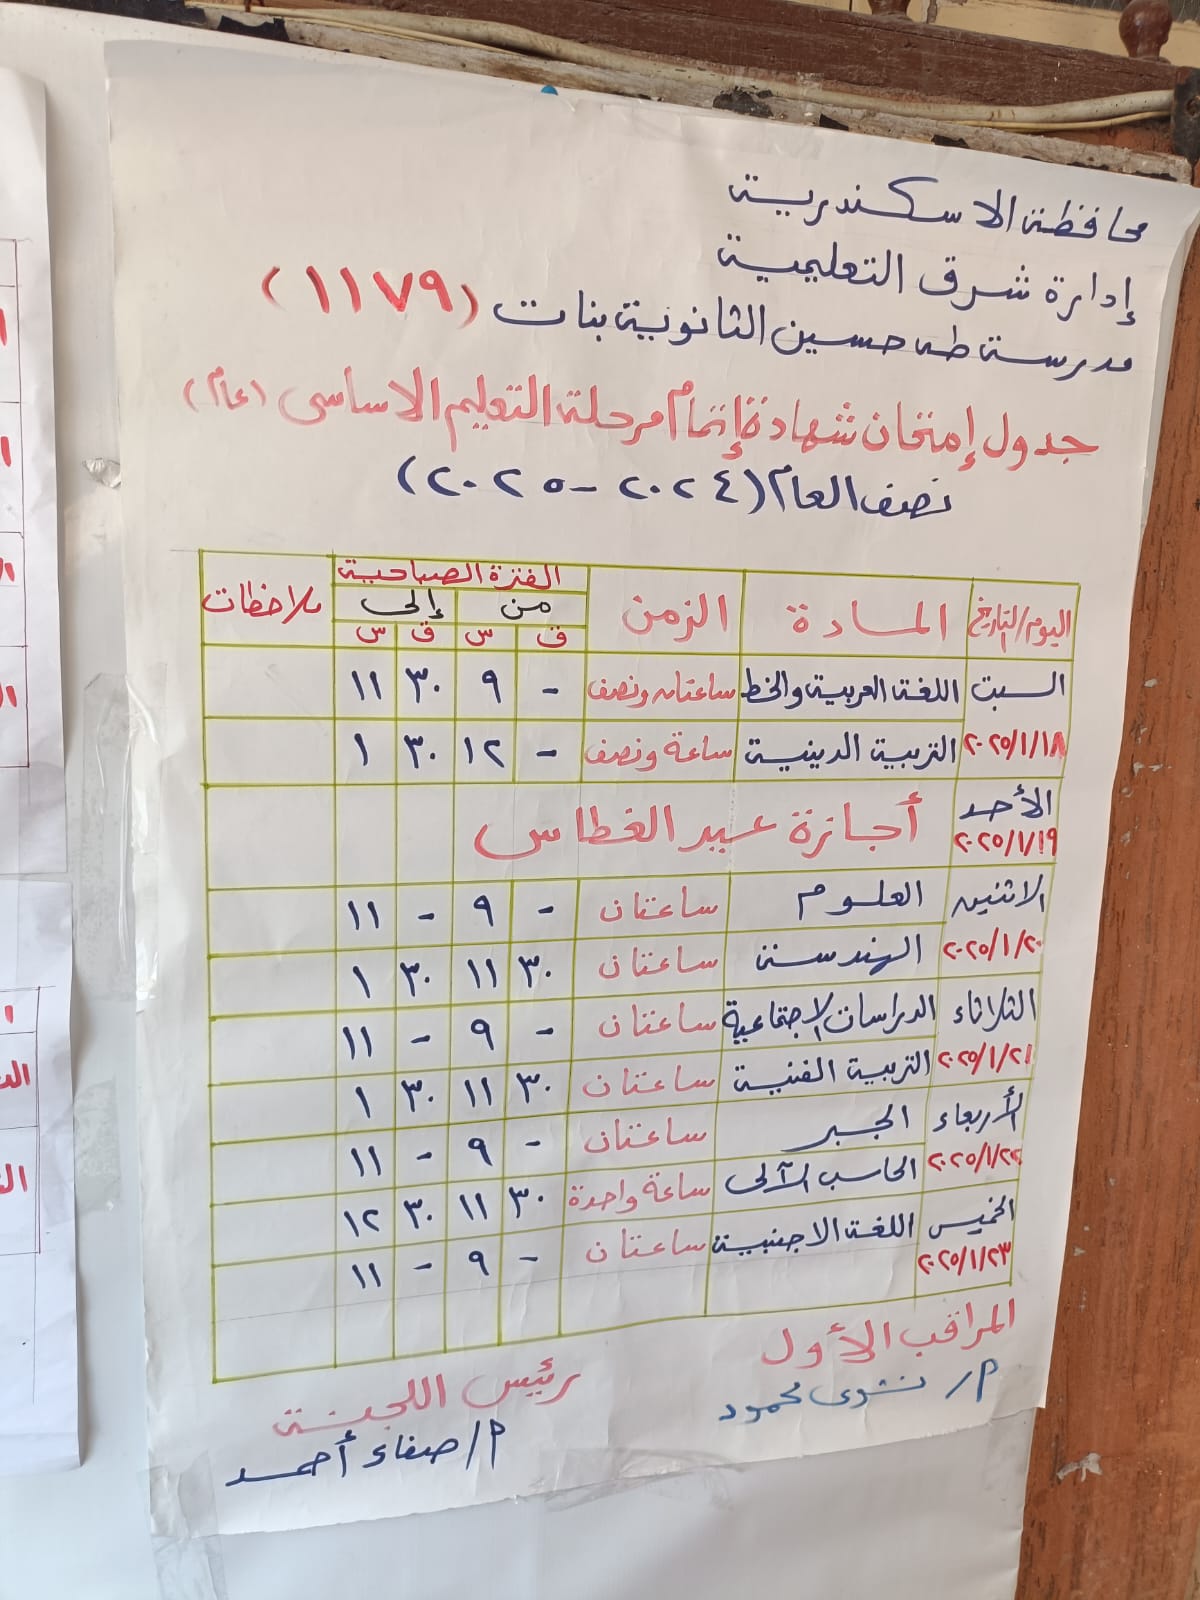 محافظة الاسكندرية
إدارة شرق التعليمية
مدرسة طه حسين الثانوية بنات (١١٧٩)
جدول إمتحان شهادة إتمام مرحلة التعليم الاساسى (عام)
نصف العام (٢٠٢٤ - ٢٠٢٥)
اليوم/التاريخ المادة الزمن الفترة الصباحية ملاحظات
من إلى
ق س ق س
السبت اللغة العربية والخط ساعتان ونصف - ٩ ٣٠ ١١
٢٠٢٥/١/١٨ التربية الدينية ساعة ونصف - ١٢ ٣٠ ١
الأحد أجازة عيد الغطاس
٢٠٢٥/١/١٩
الاثنين العلوم ساعتان - ٩ - ١١
٢٠٢٥/١/٢٠ الهندسة ساعتان ٣٠ ١١ ٣٠ ١
الثلاثاء الدراسات الاجتماعية ساعتان - ٩ - ١١
٢٠٢٥/١/٢١ التربية الفنية ساعتان ٣٠ ١١ ٣٠ ١
الأربعاء الجبر ساعتان - ٩ - ١١
٢٠٢٥/١/٢٢ الحاسب الآلى ساعة واحدة ٣٠ ١١ ٣٠ ١٢
الخميس اللغة الاجنبية ساعتان - ٩ - ١١
٢٠٢٥/١/٢٣
المراقب الأول رئيس اللجنة
م/ نشوى محمود م/ صفاء أحمد